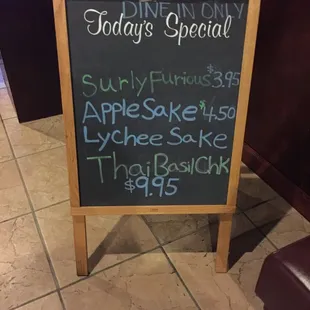 DINE IN ONLY
Today's Special
Surly Furious $3.95
Apple Sake $4.50
Lychee Sake
Thai Basil Chk
$9.95